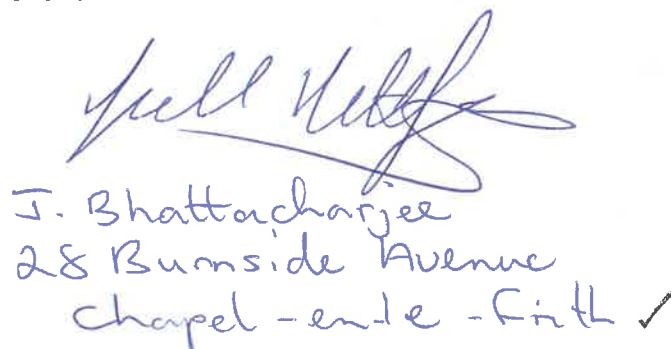 J. Bhattacharjee
28 Burnside Avenue
Chapel-en-le-Frith ✓